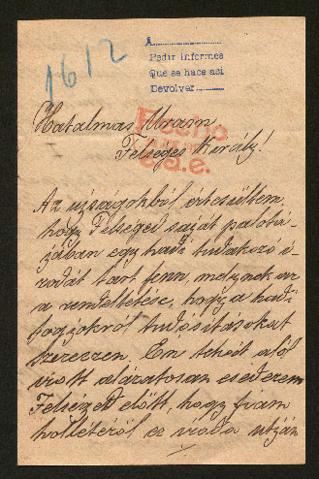 1612
A
Pedir informes
Que se hace aci
Devolver
Hatalmas Uram
Felséges Király!
Az ujságokból értesültem,
hogy Felséged saját palotá-
jában egy hadi tudakozó i-
rodát tart fenn, melynek az
a rendeltetése, hogy a hadi
foglyokról tudósításokat
szerezzen. Én tehát alól
irott alázatosan esedezem
Felséged előtt, hogy fiam
hollétéről ez iroda utján